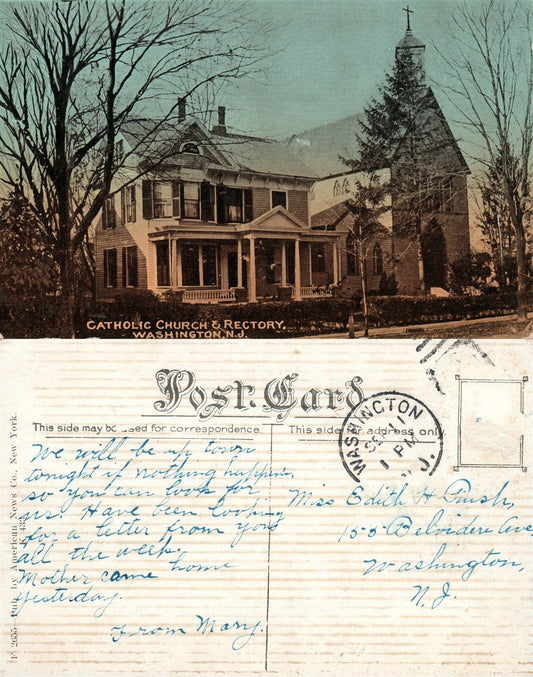 CATHOLIC CHURCH & RECTORY,
WASHINGTON, N.J.
Post Card
This side may be used for correspondence.
This side for address only
WASHINGTON
SEP
1 PM
N.J.
We will be up town
tonight if nothing happens,
so you can look for
us. Have been looking
for a letter from you
all the week.
Mother came home
yesterday.
From Mary.
Miss Edith H
155 Belvidere Ave,
Washington,
N.J.
2655—Pub. by American News Co., New York.